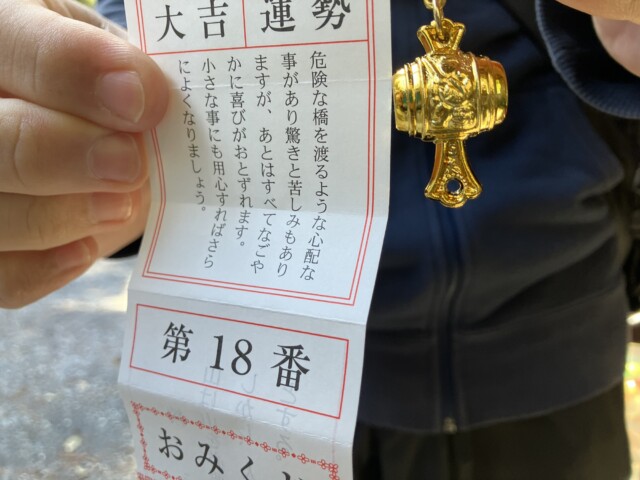 運勢
大吉
危険な橋を渡るような心配な
事があり驚きと苦しみもあり
ますが、あとはすべてなごや
かに喜びがおとずれます。
小さな事にも用心すればさら
によくなりましょう。
第18番
おみく